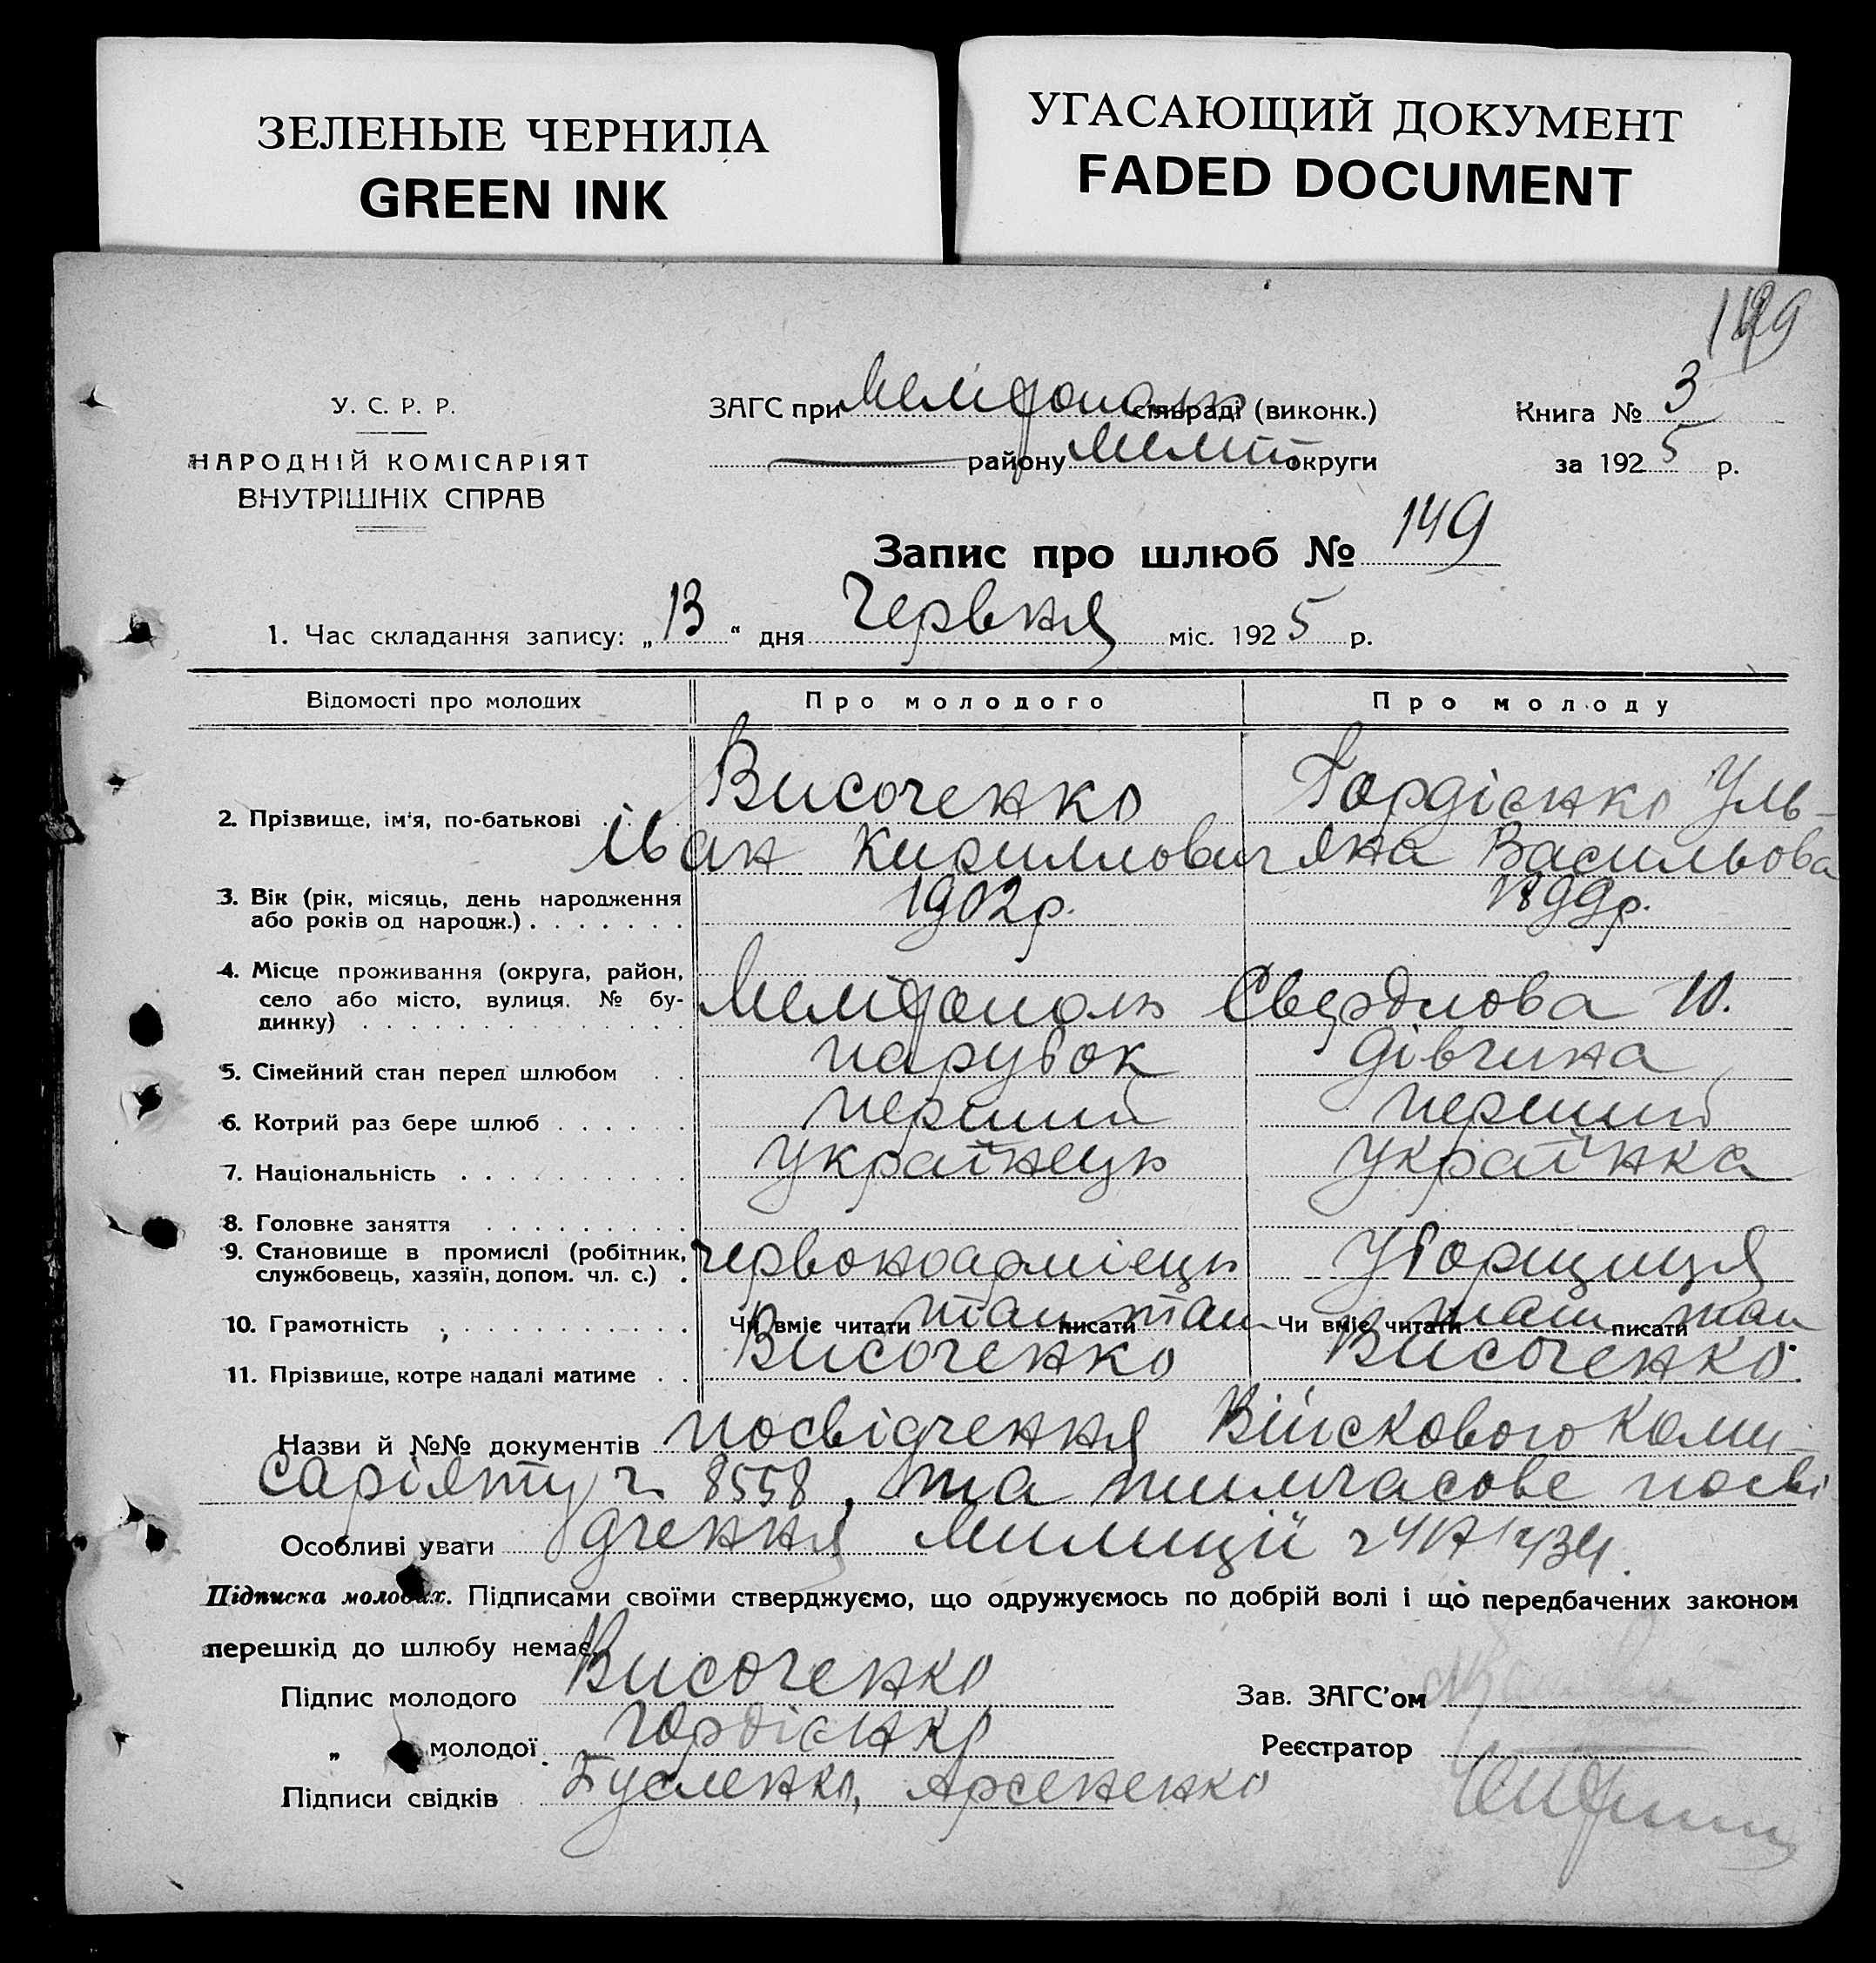 ЗЕЛЕНЫЕ ЧЕРНИЛА
GREEN INK
УГАСАЮЩИЙ ДОКУМЕНТ
FADED DOCUMENT
У. С. Р. Р.
НАРОДНІЙ КОМІСАРІЯТ
ВНУТРІШНІХ СПРАВ
ЗАГС при Мелітополь сільраді (виконк.)
району Меліт округи
Книга № 3
за 1925 р.
Запис про шлюб № 149
1. Час складання запису: „13“ дня Червня міс. 1925 р.
Відомості про молодих Про молодого Про молоду
Височенко Гордієнко Уль-
2. Прізвище, ім'я, по-батькові
Іван Кириллович яна Васильова
3. Вік (рік, місяць, день народження 1902р. 1899р.
або років од народж.)
4. Місце проживання (округа, район,
село або місто, вулиця. № бу- Мелітополь Свердлова 10.
динку)
5. Сімейний стан перед шлюбом парубок дівчина
6. Котрий раз бере шлюб перший перший
7. Національність українець українка
8. Головне заняття
9. Становище в промислі (робітник, червоноармієць уборщиця
службовець, хазяїн, допом. чл. с.)
10. Грамотність Чи вміє читати так писати так Чи вміє читати так писати так
11. Прізвище, котре надалі матиме Височенко Височенко
Назви й №№ документів посвідчення Війскового Коми-
саріяту ч. 8558, та тимчасове посві
Особливі уваги дчення Милиції
Підписка молодих. Підписами своїми стверджуємо, що одружуємось по добрій волі і що передбачених законом
перешкід до шлюбу немає.
Підпис молодого Височенко
Зав. ЗАГС'ом
„ молодої Гордієнко
Реєстратор
Підписи свідків Арсененко